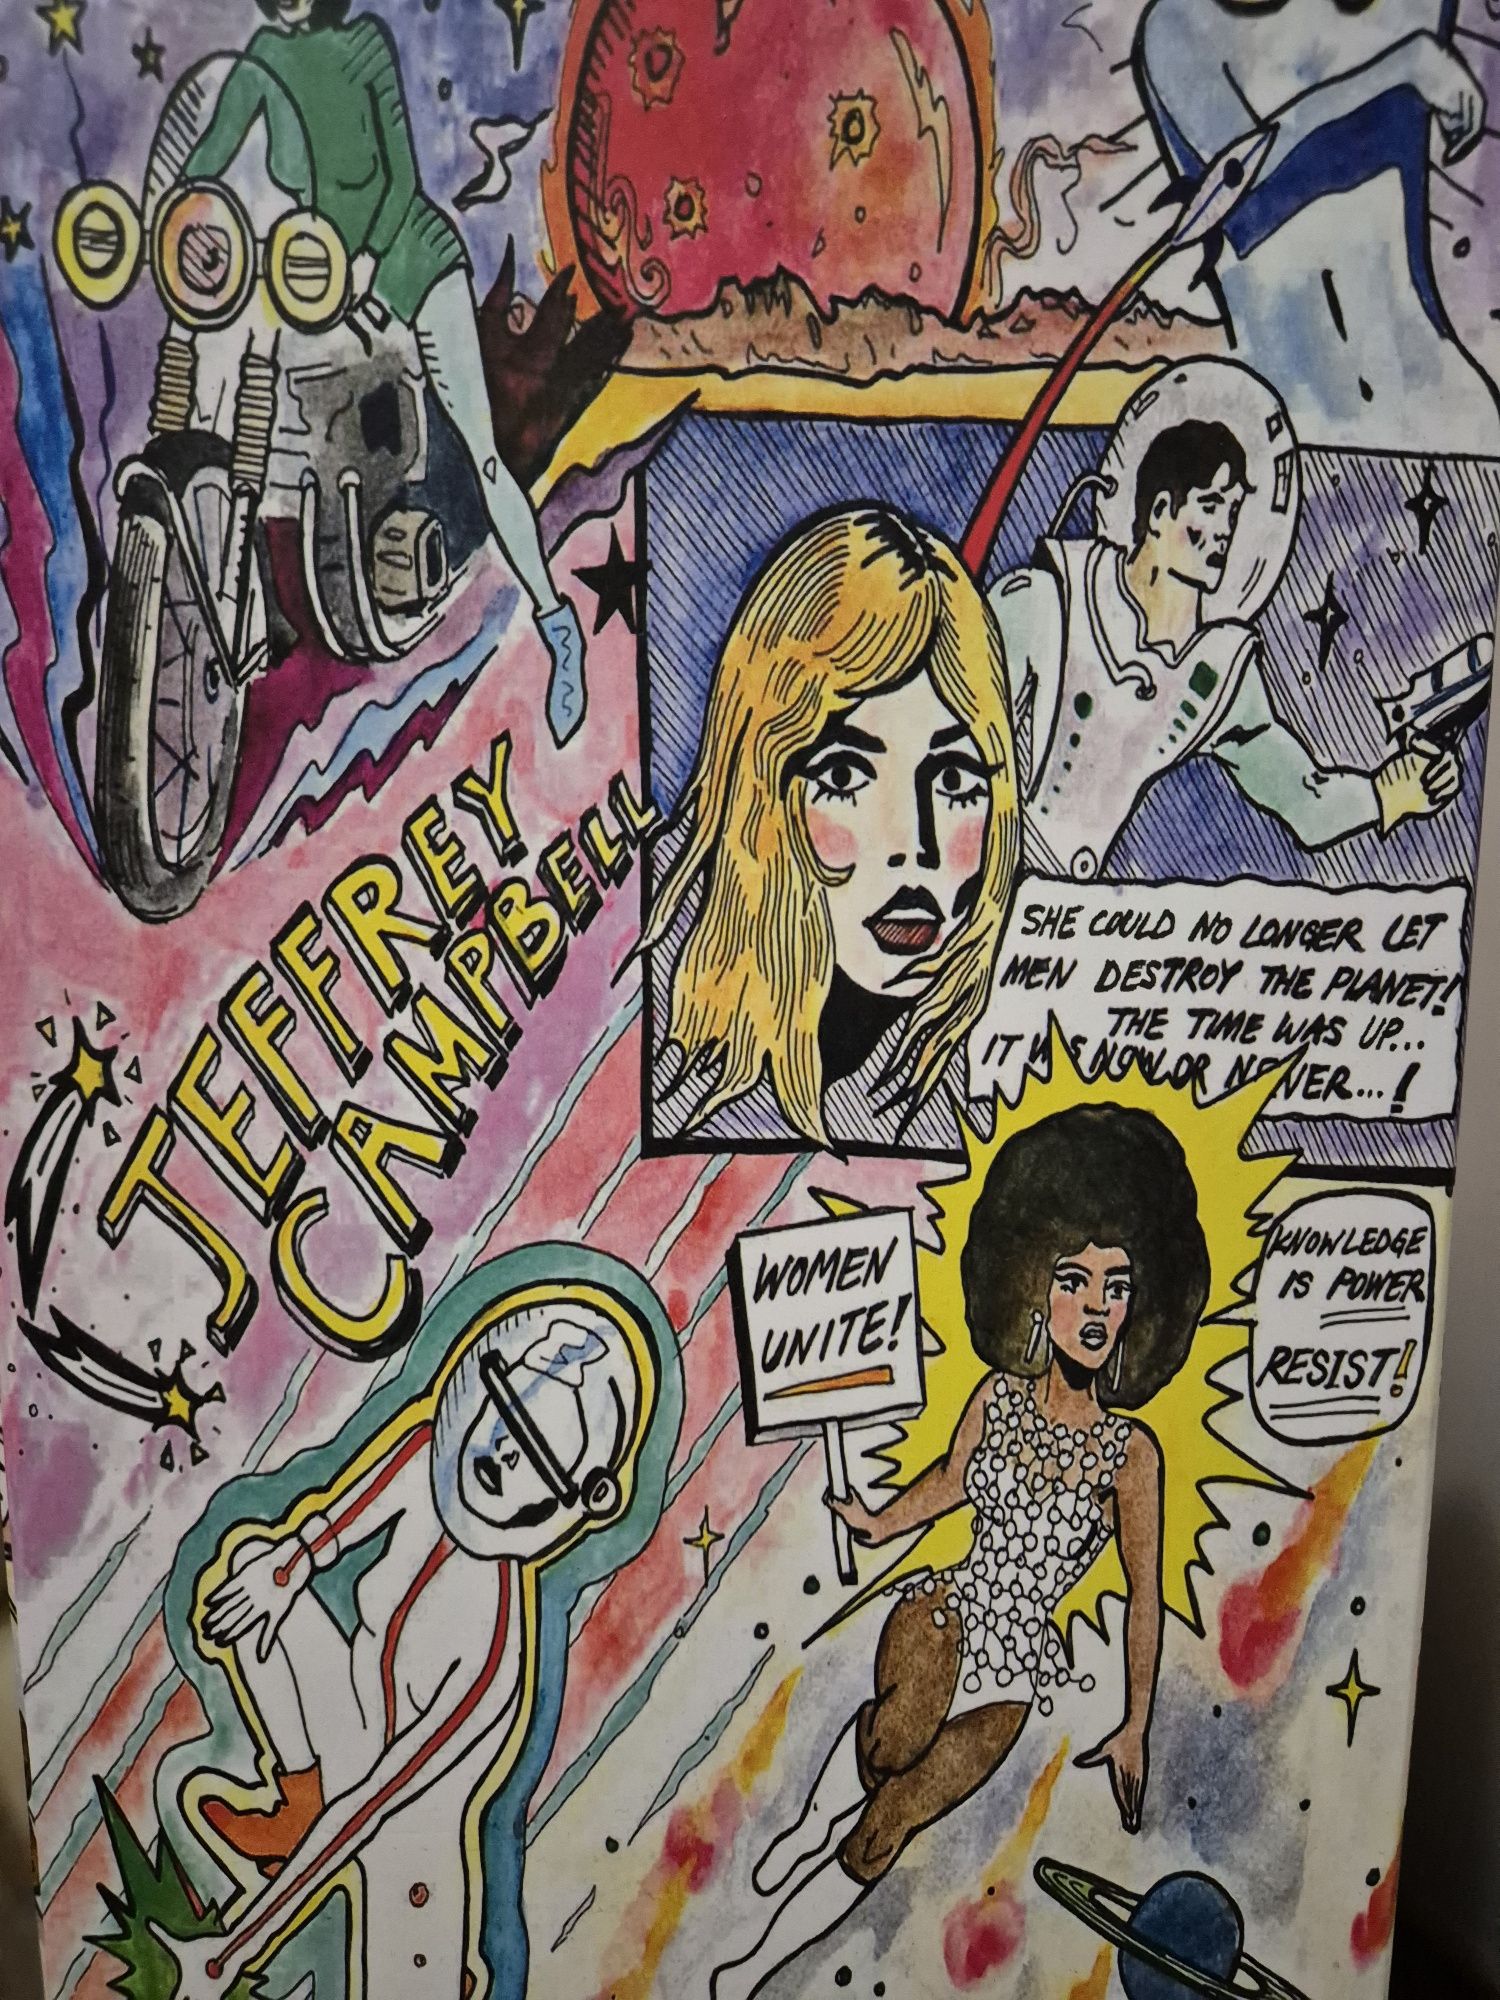 JEFFREY
CAMPBELL
SHE COULD NO LONGER LET
MEN DESTROY THE PLANET!
THE TIME WAS UP...
IT WAS NOW OR NEVER...!
WOMEN
UNITE!
KNOWLEDGE
IS POWER
RESIST!